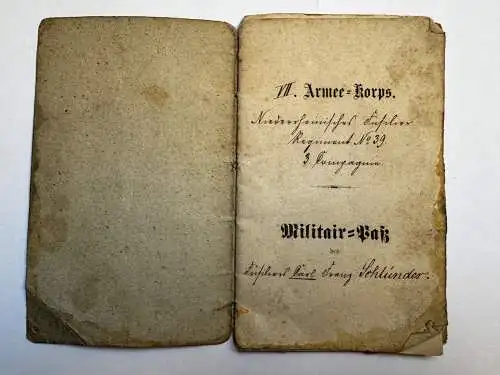 VII. Armee=Korps.
Niederrheinisches Füsilier
Regiment No 39
3. Compagnie.
Militair=Paß
des
Füsiliers Karl Franz Schlünder.